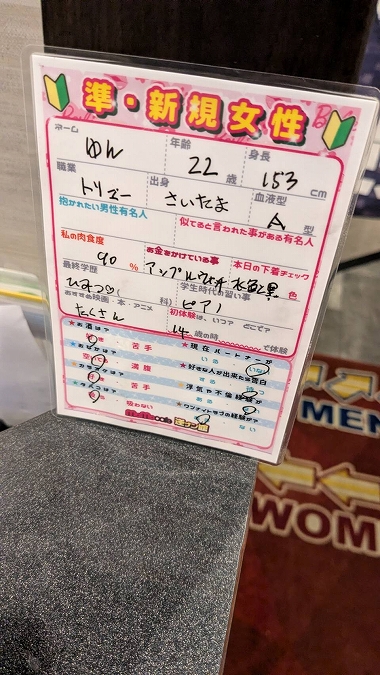 準・新規女性
ネーム 年齢 身長
ゆん 22歳 153cm
職業 出身 血液型
さいたま A型
抱かれたい男性有名人 似てると言われた事がある有名人
私の肉食度 お金をかけている事 本日の下着チェック
90% 水色と黒 色
最終学歴 学生時代の習い事
ひみつ♡ 科) ピアノ
おすすめ映画・本・アニメ 初体験は、いつ？どこで？
たくさん 14歳の時 で体験
★お酒は？ ★現在パートナーが
苦手 いる いない
★おなかは？ ★好きな人が出来たら告白
満腹
★カラオケは？ ★浮気や不倫経験が
苦手 ある
★タバコは？ ★ワンナイトラブの経験が？
吸わない ない
MEN
WOM